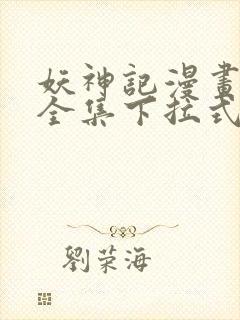 妖神記漫畫
全集下拉式
劉荣海